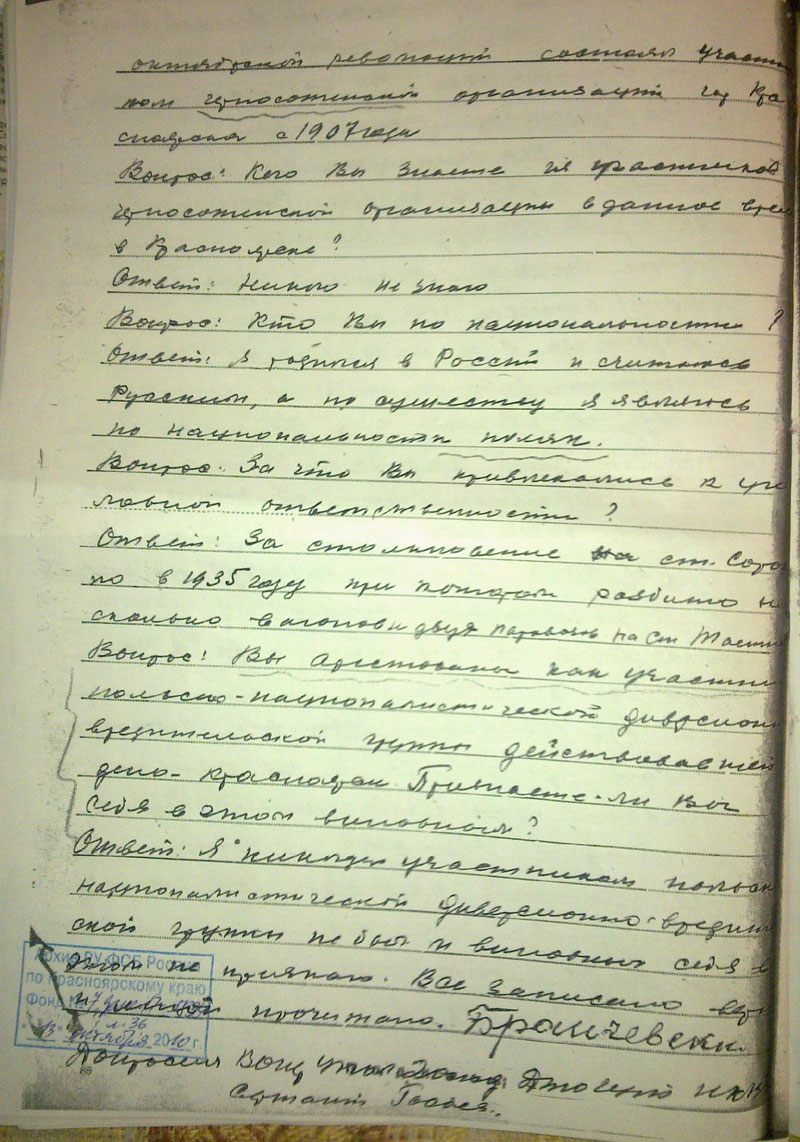 октябрьской революции состоял участ
ком черносотенской организации гор Кра
сноярска с 1907 года
Вопрос: Кого Вы знаете из участников
черносотенской организации в данное врем
в Красноярске?
Ответ: Никого не знаю
Вопрос: Кто Вы по национальности?
Ответ: Я родился в России и считаюсь
Русским, а по существу я являюсь
по национальности поляк.
Вопрос. За что Вы привлекались к уго
ловной ответственности?
Ответ: За столкновение на ст. Соро
по в 1935 году при котором разбито не
сколько вагонов и двух паровозов на ст
Вопрос: Вы арестованы как участни
польско-националистической диверсион
вредительской группы действовавшей
депо-Красноярск. Признаете-ли Вы
себя в этом виновным?
Ответ: Я никогда участником польск
националистической диверсионно-вредит
ской группы не был и виновным себя в
этом не признаю. Все записано вер
и мной прочитано. Бранчевски
Архив РУ ФСБ России
по Красноярскому краю
Фонд №
12 октября 2010 г.
Допросил
Сержант